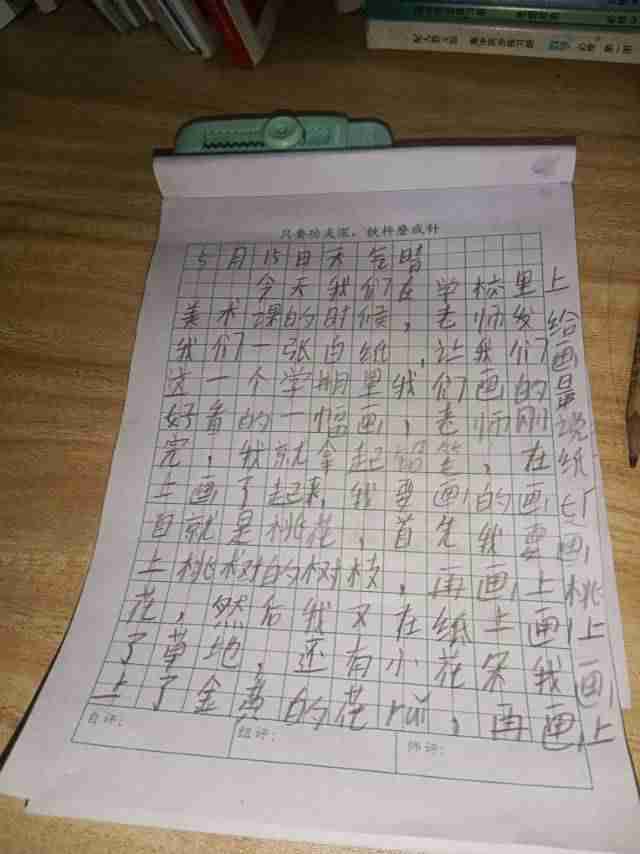 只要功夫深，铁杵磨成针
5月15日天气晴
今天我们在学校里上
美术课的时候，老师发给
我们一张白纸，让我们画
这一个学期里我们画的最
好看的一幅画，老师刚说
完，我就拿起铅笔，在纸
上画了起来，我要画的画
目就是桃花，首先我要画
上桃树的树枝，再画上桃
花，然后我又在纸上画上
了草地，还有小花朵我画
上了金黄的花ruǐ，再画上
自评：
组评：
师评：